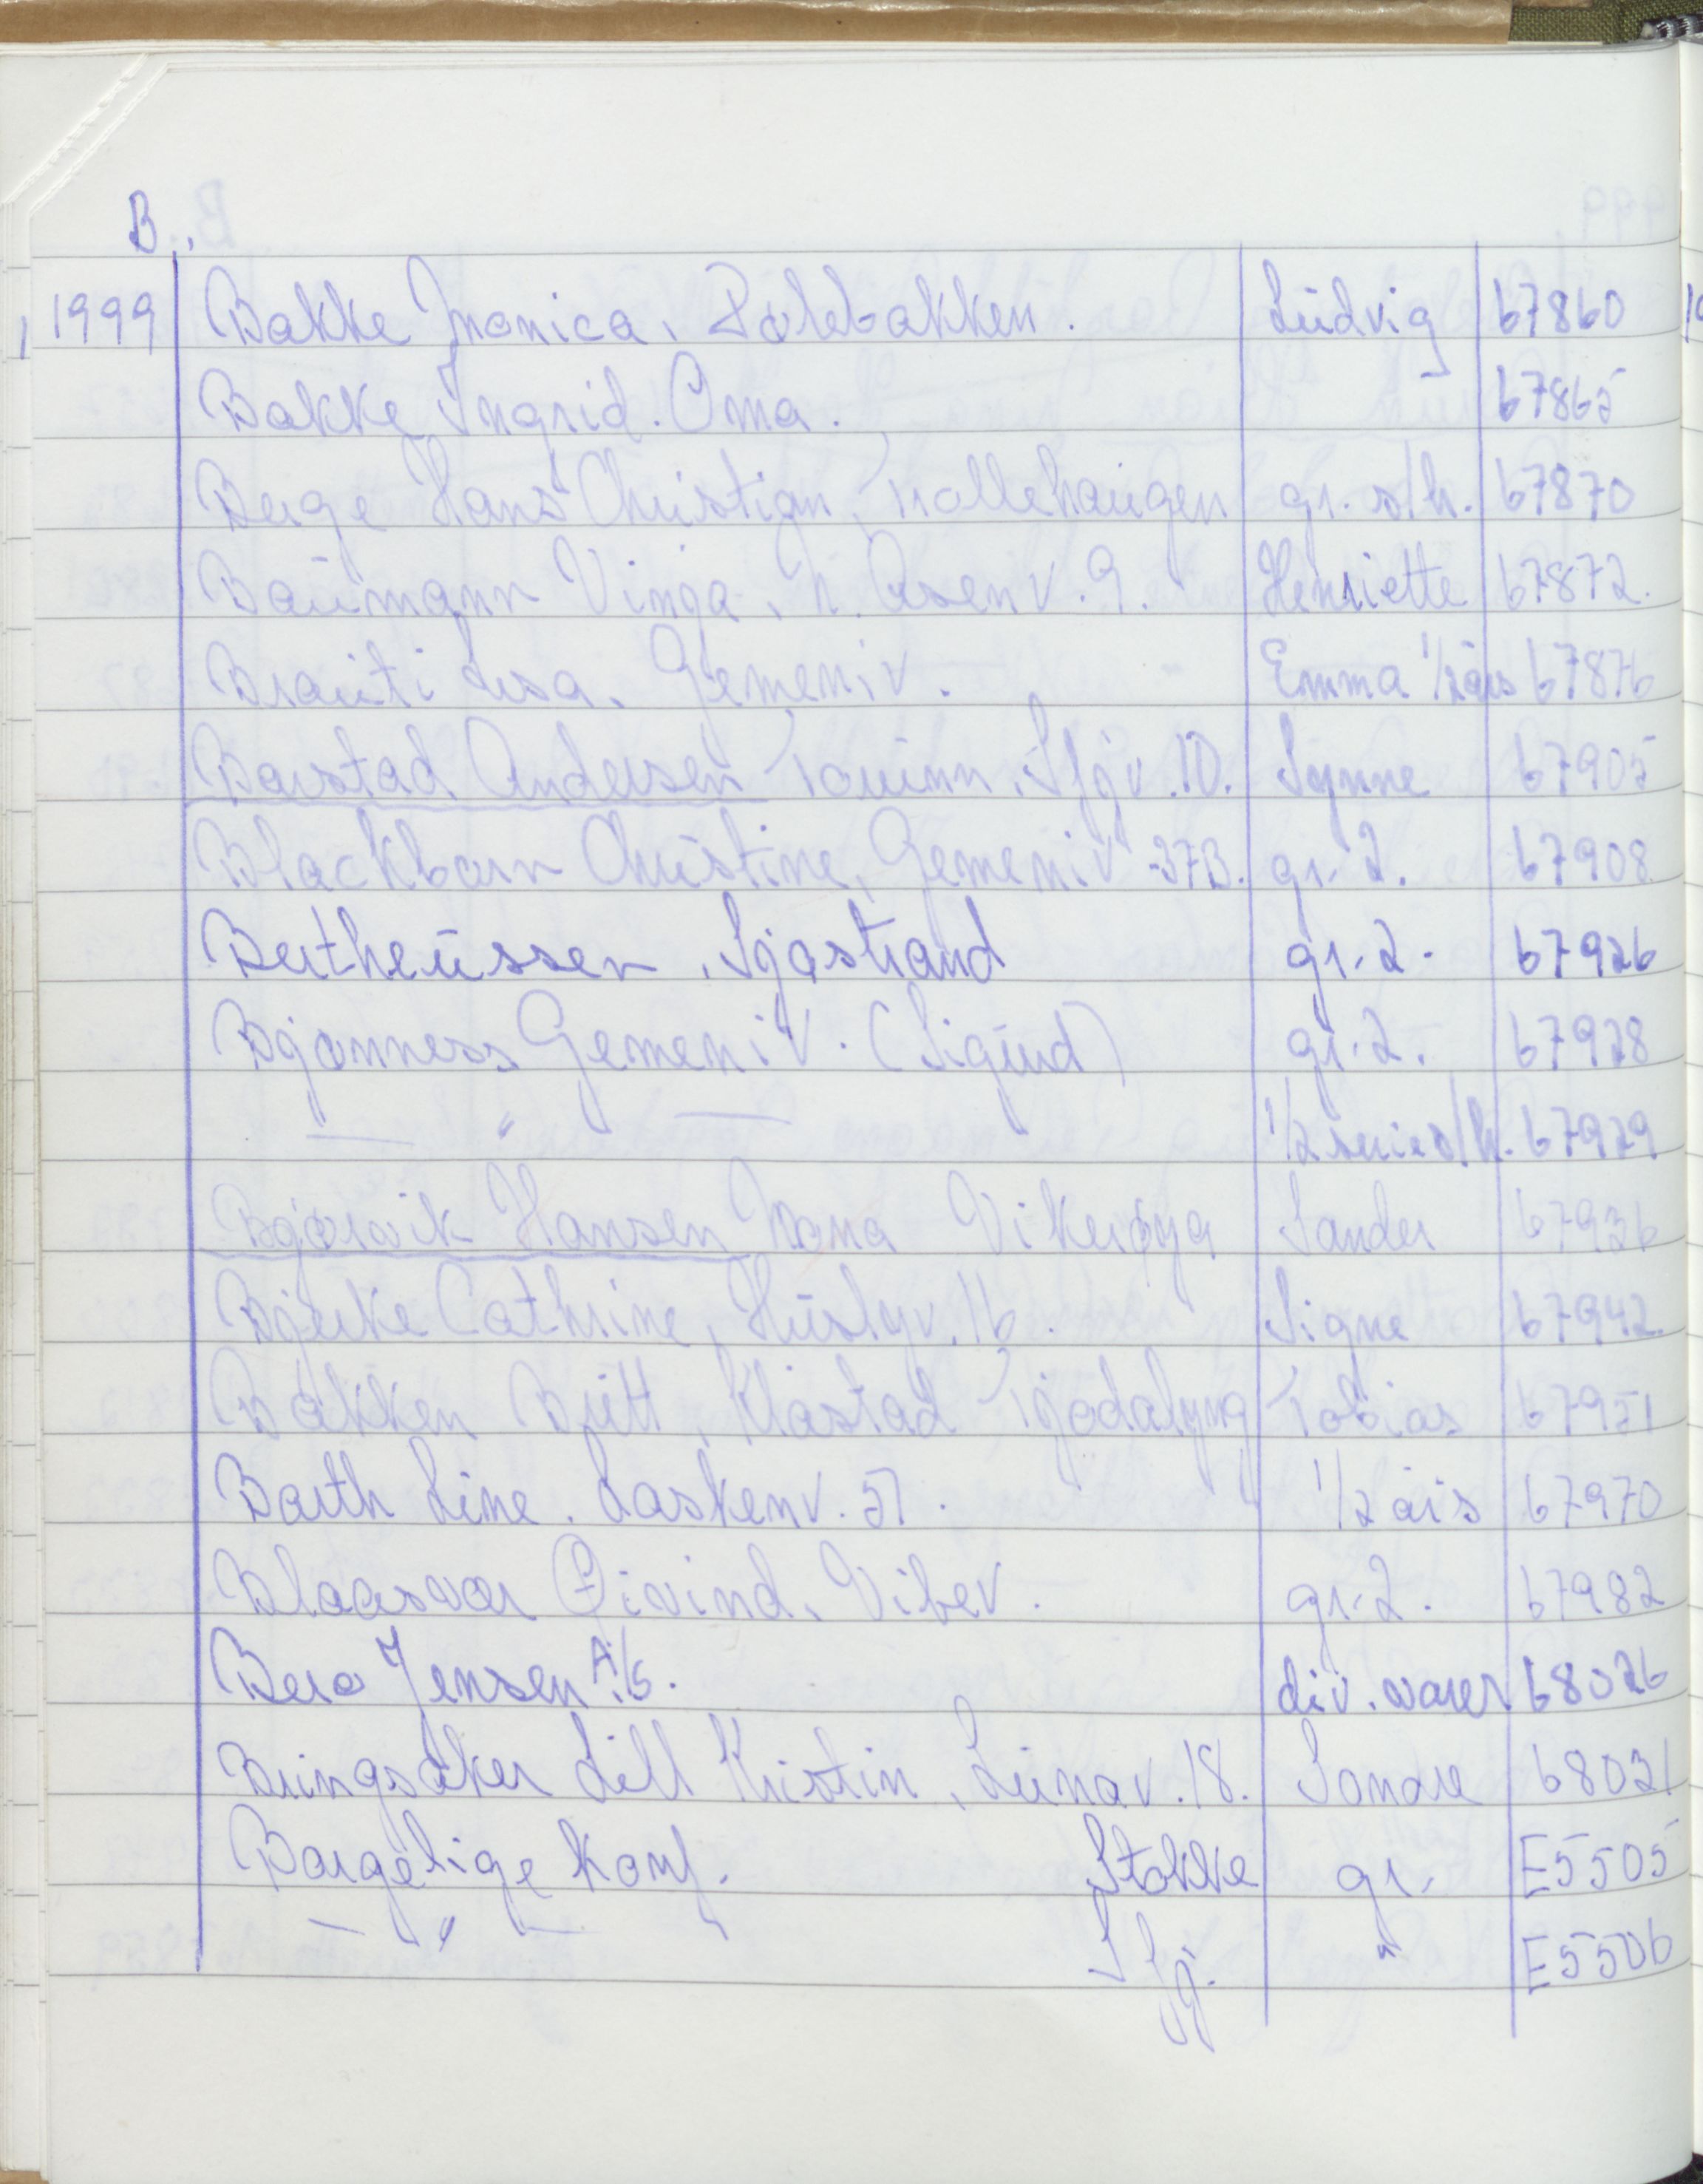 B.
1999 Bakke Monica, Pølebakken. Ludvig 67860
Bakke Ingrid. Oma. 67865
Berge Hans Christian, Trollehaugen gr. s/h. 67870
Baumann Vinga, N. Åsenv. 9. Henriette 67872.
Brauti Lisa, Gemeniv. Emma 1/2 års 67876
Barstad Andersen Tourinn, Sfjv. 10. Synne 67905
Blackborn Christine, Gemeniv 37B. gr. 2. 67908
Bertheussen, Sjøstrand gr. 2. 67926
Bjønness Gemeniv. (Sigurd) gr. 2. 67928
— " — 1/2 serie s/h. 67929
Bjørvik Hansen Mona Vikerøya Sander 67936
Bjerke Cathrine, Huslyv. 16. Signe 67942
Bakken Britt, Klåstad Tjødalyng Tobias 67951
Barth Line. Laskenv. 57. 1/2 års 67970
Blaasvær Øivind, Vibev. gr. 2. 67982
Berø Jensen A/S. div. varer 68026
Bringsåker Lill Kristin, Lunav. 18. Sondre 68031
Borgelige Konf. Stokke gr. E5505
— " — Sfj. " E5506